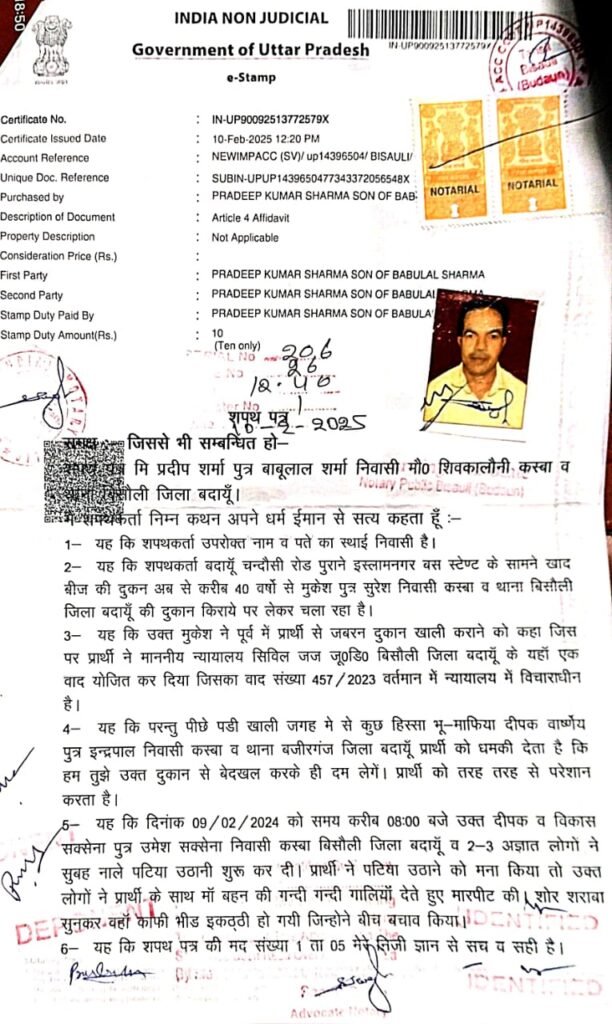 18:50
INDIA NON JUDICIAL
IN-UP90092513772579X
Government of Uttar Pradesh
e-Stamp
(Budaun)
Certificate No. : IN-UP90092513772579X
Certificate Issued Date : 10-Feb-2025 12:20 PM
Account Reference : NEWIMPACC (SV)/ up14396504/ BISAULI/
Unique Doc. Reference : SUBIN-UPUP1439650477343372056548X
Purchased by : PRADEEP KUMAR SHARMA SON OF BAB
NOTARIAL NOTARIAL
Description of Document : Article 4 Affidavit
Property Description : Not Applicable
Consideration Price (Rs.) :
First Party : PRADEEP KUMAR SHARMA SON OF BABULAL SHARMA
Second Party : PRADEEP KUMAR SHARMA SON OF BABULAL SHARMA
Stamp Duty Paid By : PRADEEP KUMAR SHARMA SON OF BABULA
Stamp Duty Amount(Rs.) : 10
(Ten only)
206
26
12.40
1
शपथ पत्र
10-2-2025
समक्ष :- जिससे भी सम्बन्धित हो–
शपथ पत्र मि प्रदीप शर्मा पुत्र बाबूलाल शर्मा निवासी मौ0 शिवकालौनी कस्बा व
थाना बिसौली जिला बदायूँ।
Notary Public Bisauli (Budaun)
मैं शपथकर्ता निम्न कथन अपने धर्म ईमान से सत्य कहता हूँ :–
1– यह कि शपथकर्ता उपरोक्त नाम व पते का स्थाई निवासी है।
2– यह कि शपथकर्ता बदायूँ चन्दौसी रोड पुराने इस्लामनगर बस स्टेण्ट के सामने खाद
बीज की दुकन अब से करीब 40 वर्षो से मुकेश पुत्र सुरेश निवासी कस्बा व थाना बिसौली
जिला बदायूँ की दुकान किराये पर लेकर चला रहा है।
3– यह कि उक्त मुकेश ने पूर्व में प्रार्थी से जबरन दुकान खाली कराने को कहा जिस
पर प्रार्थी ने माननीय न्यायालय सिविल जज जू0डि0 बिसौली जिला बदायूँ के यहाँ एक
वाद योजित कर दिया जिसका वाद संख्या 457/2023 वर्तमान में न्यायालय में विचाराधीन
है।
4– यह कि परन्तु पीछे पडी खाली जगह मे से कुछ हिस्सा भू–माफिया दीपक वार्ष्णेय
पुत्र इन्द्रपाल निवासी कस्बा व थाना बजीरगंज जिला बदायूँ प्रार्थी को धमकी देता है कि
हम तुझे उक्त दुकान से बेदखल करके ही दम लेगें। प्रार्थी को तरह तरह से परेशान
करता है।
5– यह कि दिनांक 09/02/2024 को समय करीब 08:00 बजे उक्त दीपक व विकास
सक्सेना पुत्र उमेश सक्सेना निवासी कस्बा बिसौली जिला बदायूँ व 2–3 अज्ञात लोगों ने
सुबह नाले पटिया उठानी शुरू कर दी। प्रार्थी ने पटिया उठाने को मना किया तो उक्त
लोगों ने प्रार्थी के साथ माँ बहन की गन्दी गन्दी गालियाँ देते हुए मारपीट की। शोर शराबा
सुनकर वहाँ काफी भीड इकठठी हो गयी जिन्होने बीच बचाव किया।
IDENTIFIED
6– यह कि शपथ पत्र की मद संख्या 1 ता 05 मेरे निजी ज्ञान से सच व सही है।
IDENTIFIED
Advocate Notary